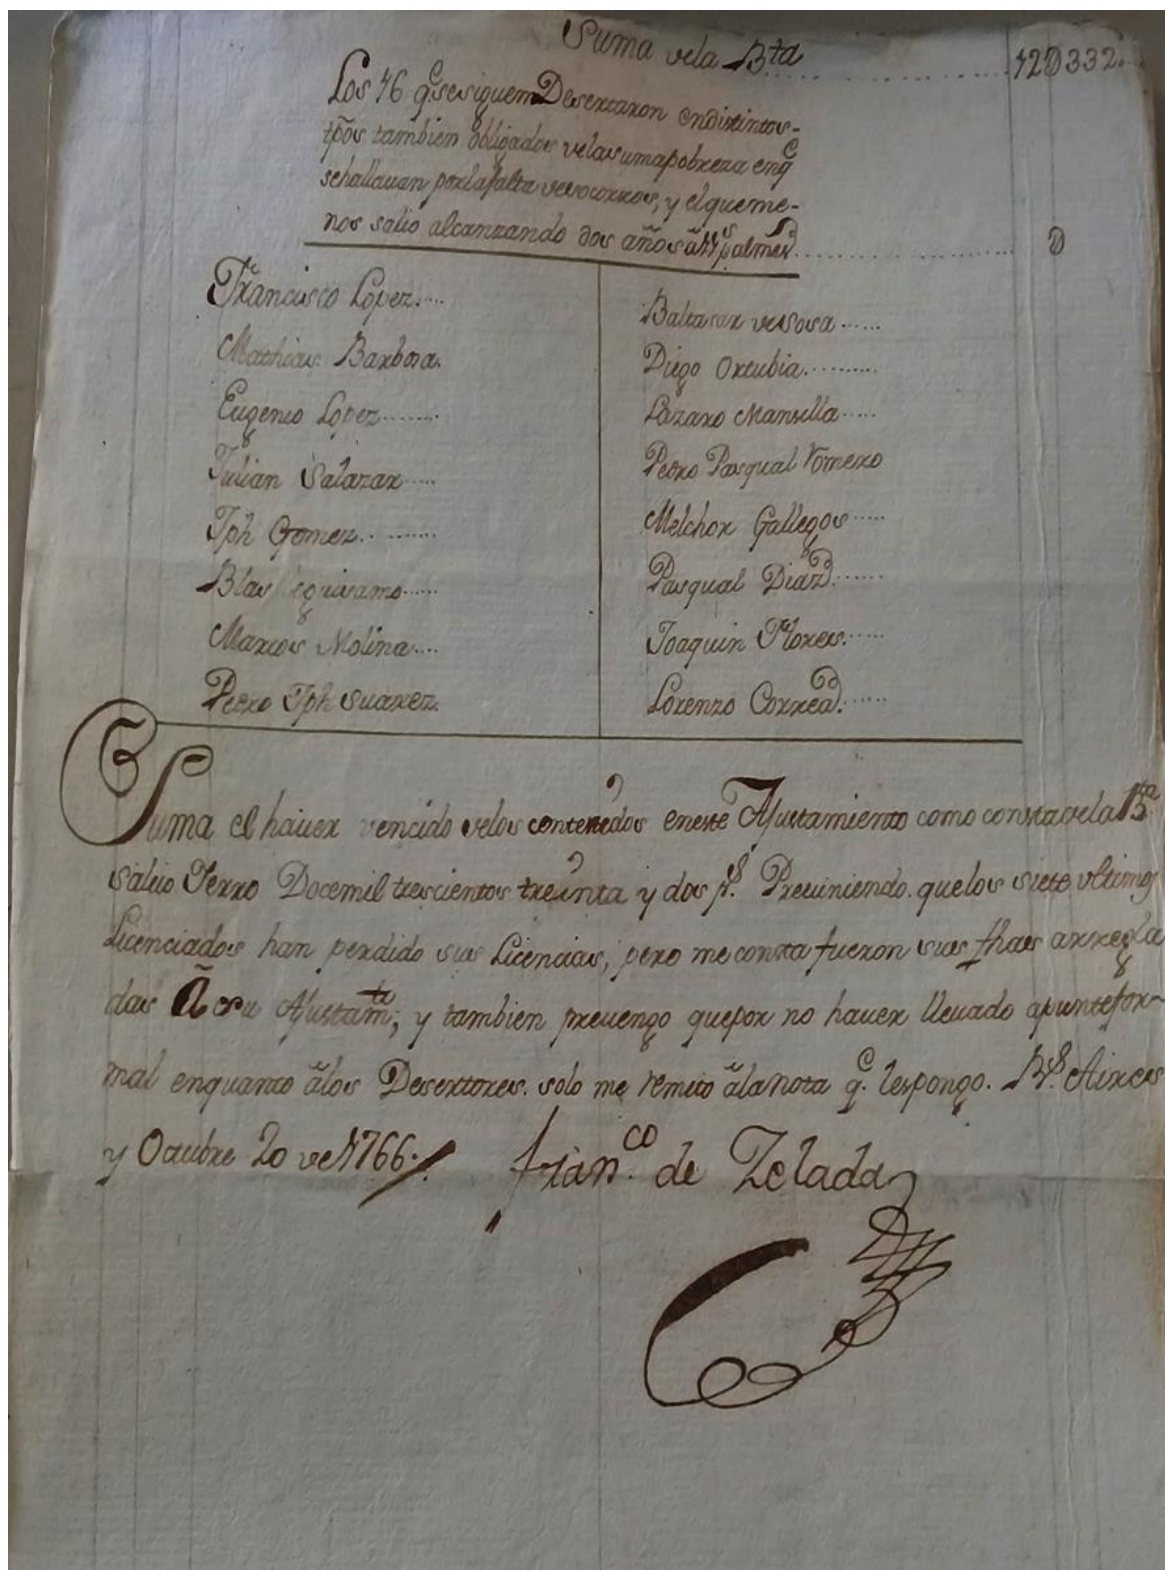 Suma de la B.ta ........ 12D332.
Los 16 q.e se siguen Desertaron en distintos
tpōs tambien obligados de la suma pobreza en q.e
se hallauan por la falta de socorros, y el que me-
nos salio alcanzando dos años â 11 p.s al mes. ........ D
Francisco Lopez....
Mathias Barbosa.
Eugenio Lopez........
Julian Salazar.....
Jph Gomez.........
Blas
Marcos Molina....
Pedro Jph Suarez.
Baltasar de Sosa......
Diego Ortubia.........
Lazaro Mansilla.....
Pedro Pasqual Romero
Melchor Gallegos.....
Pasqual Diaz.......
Joaquin Flores......
Lorenzo Correa.......
Suma el hauer vencido de los contenidos en este Ajustamiento como consta de la B.ta
saluo Yerro Doce mil trescientos treinta y dos p.s Preuiniendo que los siete vltimos
Licenciados han perdido sus Licencias, pero me consta fueron sus fhas arregla
das â su Ajustam.to, y tambien preuengo que por no hauer lleuado apunte for-
mal en quanto â los Desertores. solo me remito â la nota q.e les pongo. B.s Aires
y Octubre 20 de 1766.
Fran.co de Zelada